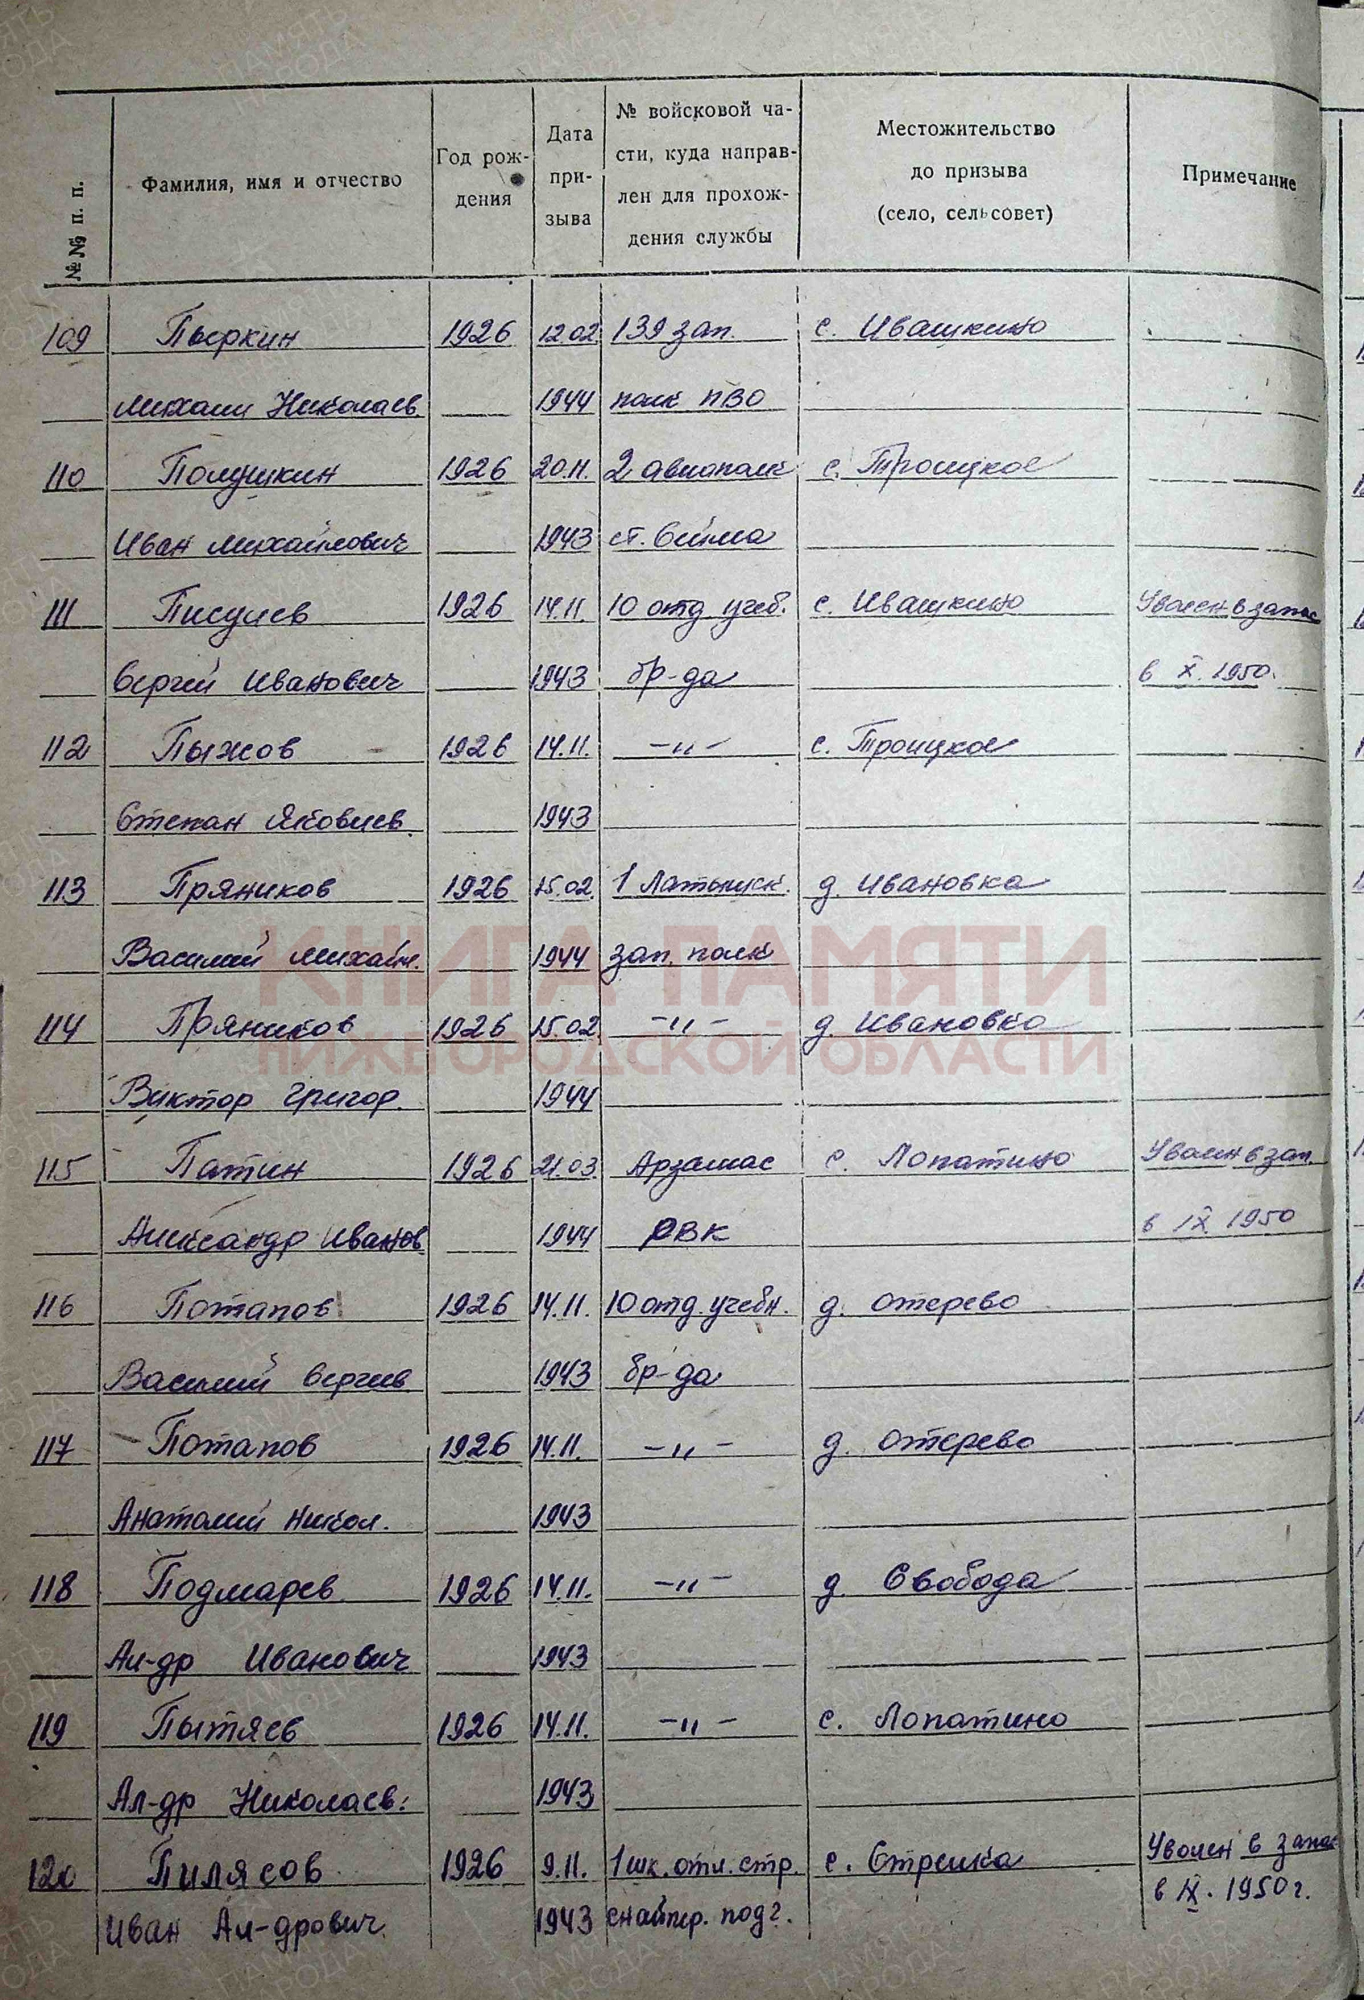 №№ п. п.
Фамилия, имя и отчество
Год рож-
дения
Дата
при-
зыва
№ войсковой ча-
сти, куда направ-
лен для прохож-
дения службы
Местожительство
до призыва
(село, сельсовет)
Примечание
109 Пыркин 1926 12.02 139 зап. с. Ивашкино
Михаил Николаев 1944 полк ПВО
110 Полушкин 1926 20.11. 2 авиополк с. Троицкое
Иван Михайлович 1943 ст. Сейма
111 1926 14.11. 10 отд. учеб. с. Ивашкино Уволен в запас
Сергей Иванович 1943 бр-да в X. 1950.
112 Пыжов 1926 14.11. –„– с. Троицкое
Степан Яковлев. 1943
113 Пряников 1926 15.02. 1 Латышск. д. Ивановка
Василий Михайл. 1944 зап. полк
114 Пряников 1926 15.02 –„– д. Ивановка
Виктор Григор. 1944
115 Патин 1926 21.03. Арзамас с. Лопатино Уволен в зап.
Александр Иванов 1944 РВК в IX 1950
116 Потапов 1926 14.11. 10 отд. учебн. д. Отерево
Василий Сергеев. 1943 бр-да
117 Потапов 1926 14.11. –„– д. Отерево
Анатолий Никол. 1943
118 Подмарев 1926 14.11. –„– д. Свобода
Ал-др Иванович 1943
119 Пытяев 1926 14.11. –„– с. Лопатино
Ал-др Николаев. 1943
120 Пилясов 1926 9.11. 1 шк. отл. стр. с. Стрелка Уволен в запас
Иван Ал-дрович. 1943 снайпер. подг. в IX. 1950 г.
КНИГА ПАМЯТИ
НИЖЕГОРОДСКОЙ ОБЛАСТИ